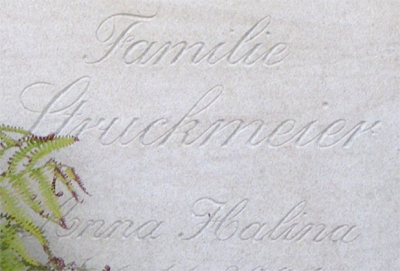 Familie
Struckmeier
Anna Halina